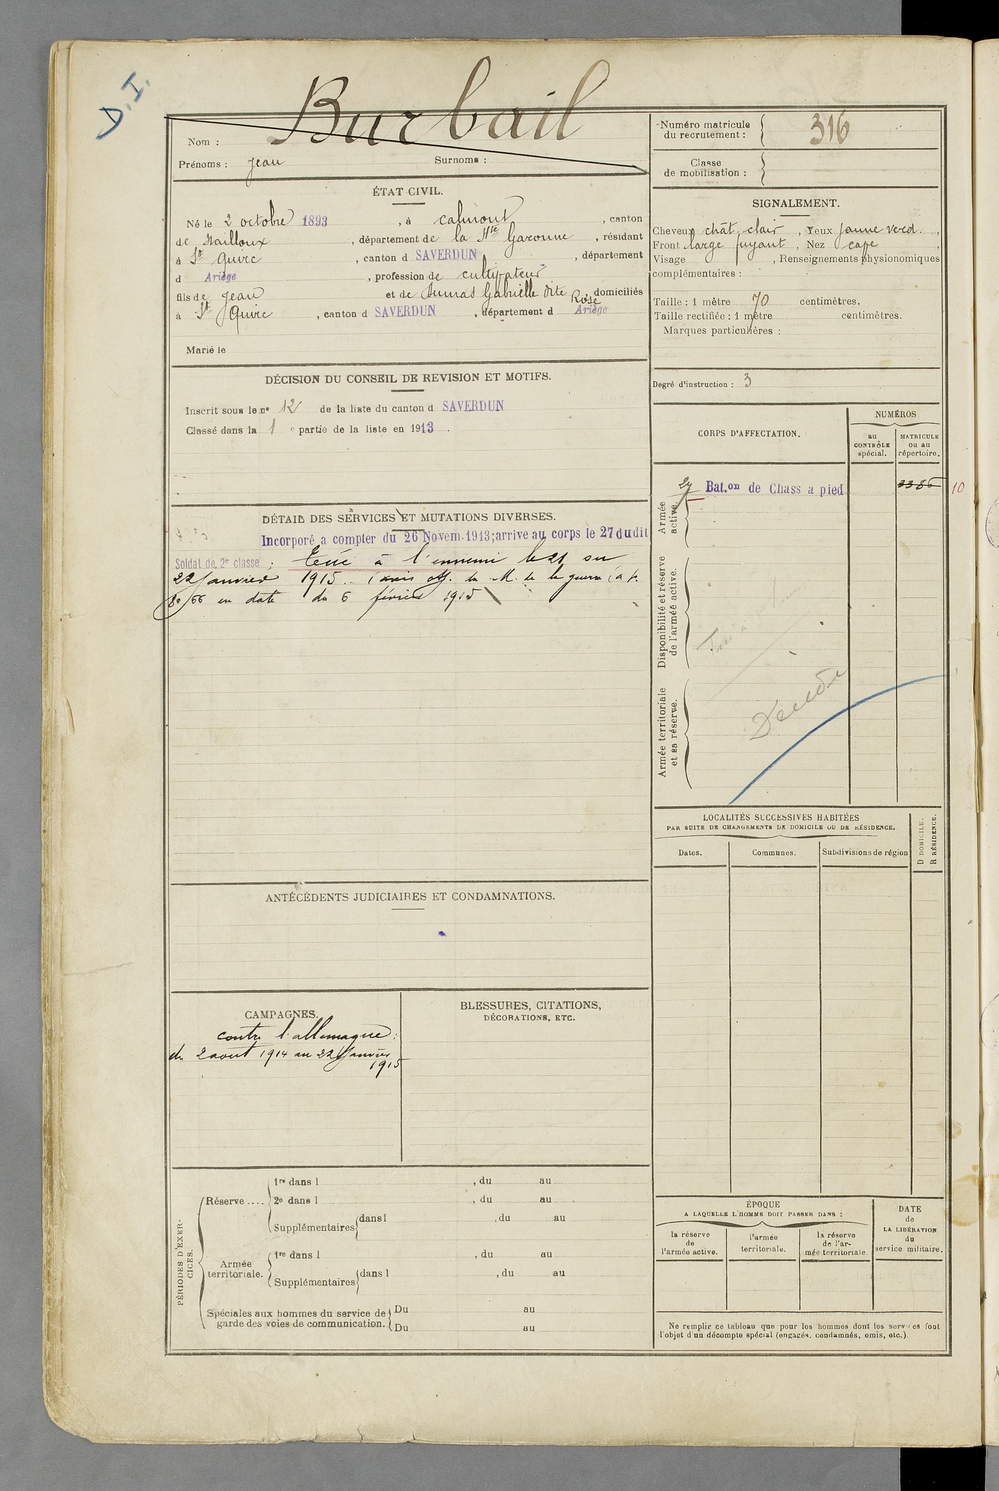 D.I.
Nom : Burbail
Prénoms : Jean Surnoms :
Numéro matricule du recrutement : 316
Classe de mobilisation :
ÉTAT CIVIL.
Né le 2 octobre 1893, à Calmont, canton
de Nailloux, département de la Hte Garonne, résidant
à St Quirc, canton d SAVERDUN, département
d Ariège, profession de cultivateur
fils de Jean et de Dumas Gabrielle dite Rose, domiciliés
à St Quirc, canton d SAVERDUN, département d Ariège
Marié le
SIGNALEMENT.
Cheveux chât clair, Yeux jaune verd.,
Front large fuyant, Nez cave
Visage , Renseignements physionomiques
complémentaires :
Taille : 1 mètre 70 centimètres.
Taille rectifiée : 1 mètre centimètres.
Marques particulières :
Degré d'instruction : 3
DÉCISION DU CONSEIL DE REVISION ET MOTIFS.
Inscrit sous le no 12 de la liste du canton d SAVERDUN
Classé dans la 1 e partie de la liste en 1913.
CORPS D'AFFECTATION.
NUMÉROS
au CONTRÔLE spécial.
MATRICULE ou au répertoire.
Armée active.
Bat.on de Chass a pied
10
Disponibilité et réserve de l'armée active.
Armée territoriale et sa réserve.
Décédé
DÉTAIL DES SERVICES ET MUTATIONS DIVERSES.
Incorporé a compter du 26 Novem. 1913; arrive au corps le 27 dudit
Soldat de 2e classe ; Tué à l'ennemi le 21 ou
22 Janvier 1915. (avis off. du M. de la guerre
en date du 6 février 1915
LOCALITÉS SUCCESSIVES HABITÉES
PAR SUITE DE CHANGEMENTS DE DOMICILE OU DE RÉSIDENCE.
Dates.
Communes.
Subdivisions de région
D DOMICILE.
R RÉSIDENCE.
ANTÉCÉDENTS JUDICIAIRES ET CONDAMNATIONS.
CAMPAGNES.
contre l'allemagne :
du 2 aout 1914 au 22 Janvier
1915
BLESSURES, CITATIONS,
DÉCORATIONS, ETC.
PÉRIODES D'EXERCICES.
Réserve ....
1re dans l , du au
2e dans l , du au
Supplémentaires dans l , du au
Armée territoriale.
1re dans l , du au
Supplémentaires dans l , du au
Spéciales aux hommes du service de garde des voies de communication.
Du au
Du au
ÉPOQUE
A LAQUELLE L'HOMME DOIT PASSER DANS :
la réserve de l'armée active.
l'armée territoriale.
la réserve de l'armée territoriale.
DATE de LA LIBÉRATION du service militaire.
Ne remplir ce tableau que pour les hommes dont les services font
l'objet d'un décompte spécial (engagés, condamnés, omis, etc.).